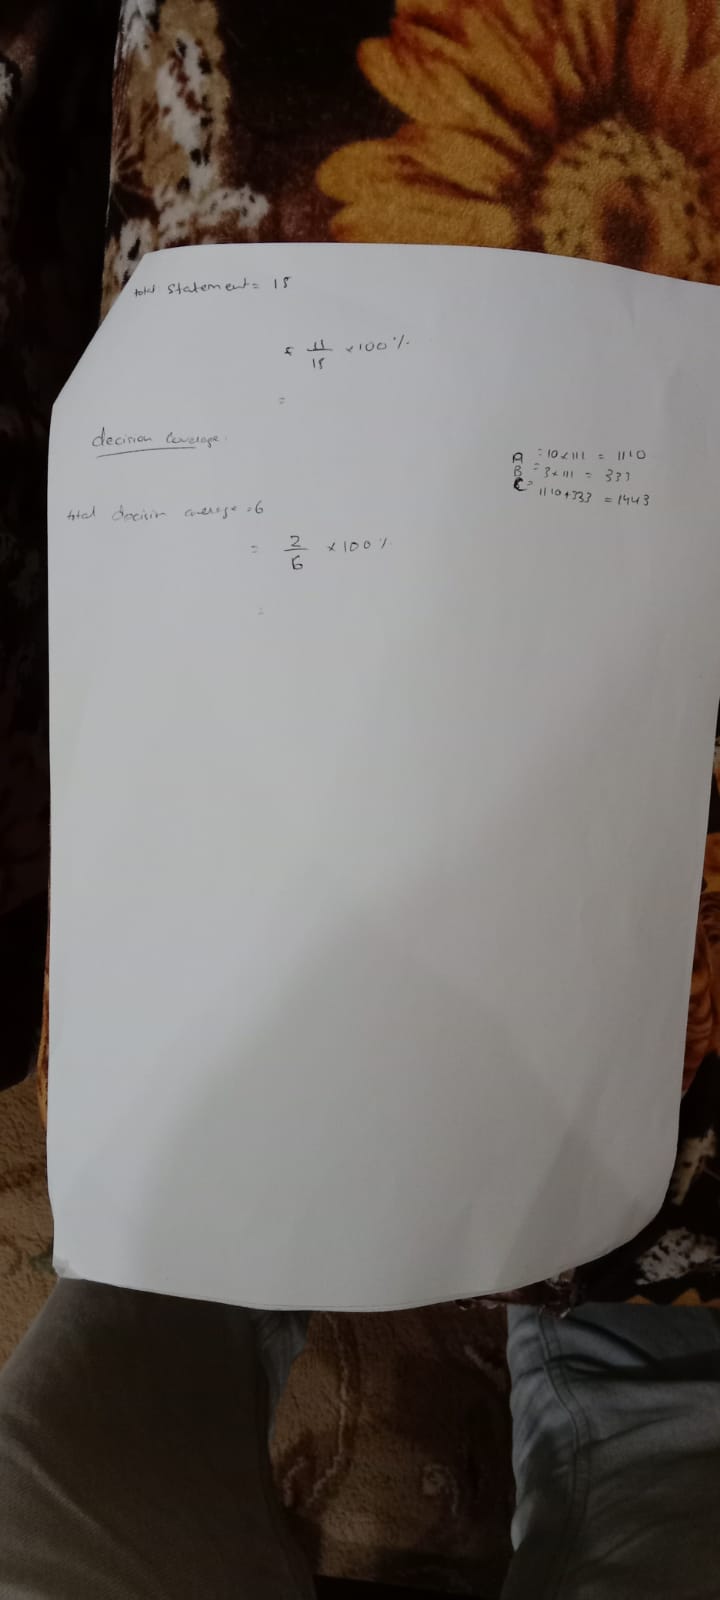 total statement = 15
= 11/15 ×100%
=
decision Coverage:
A = 10×111 = 1110
B = 3×111 = 333
C = 1110+333 = 1443
total decision average = 6
= 2/6 ×100%
=